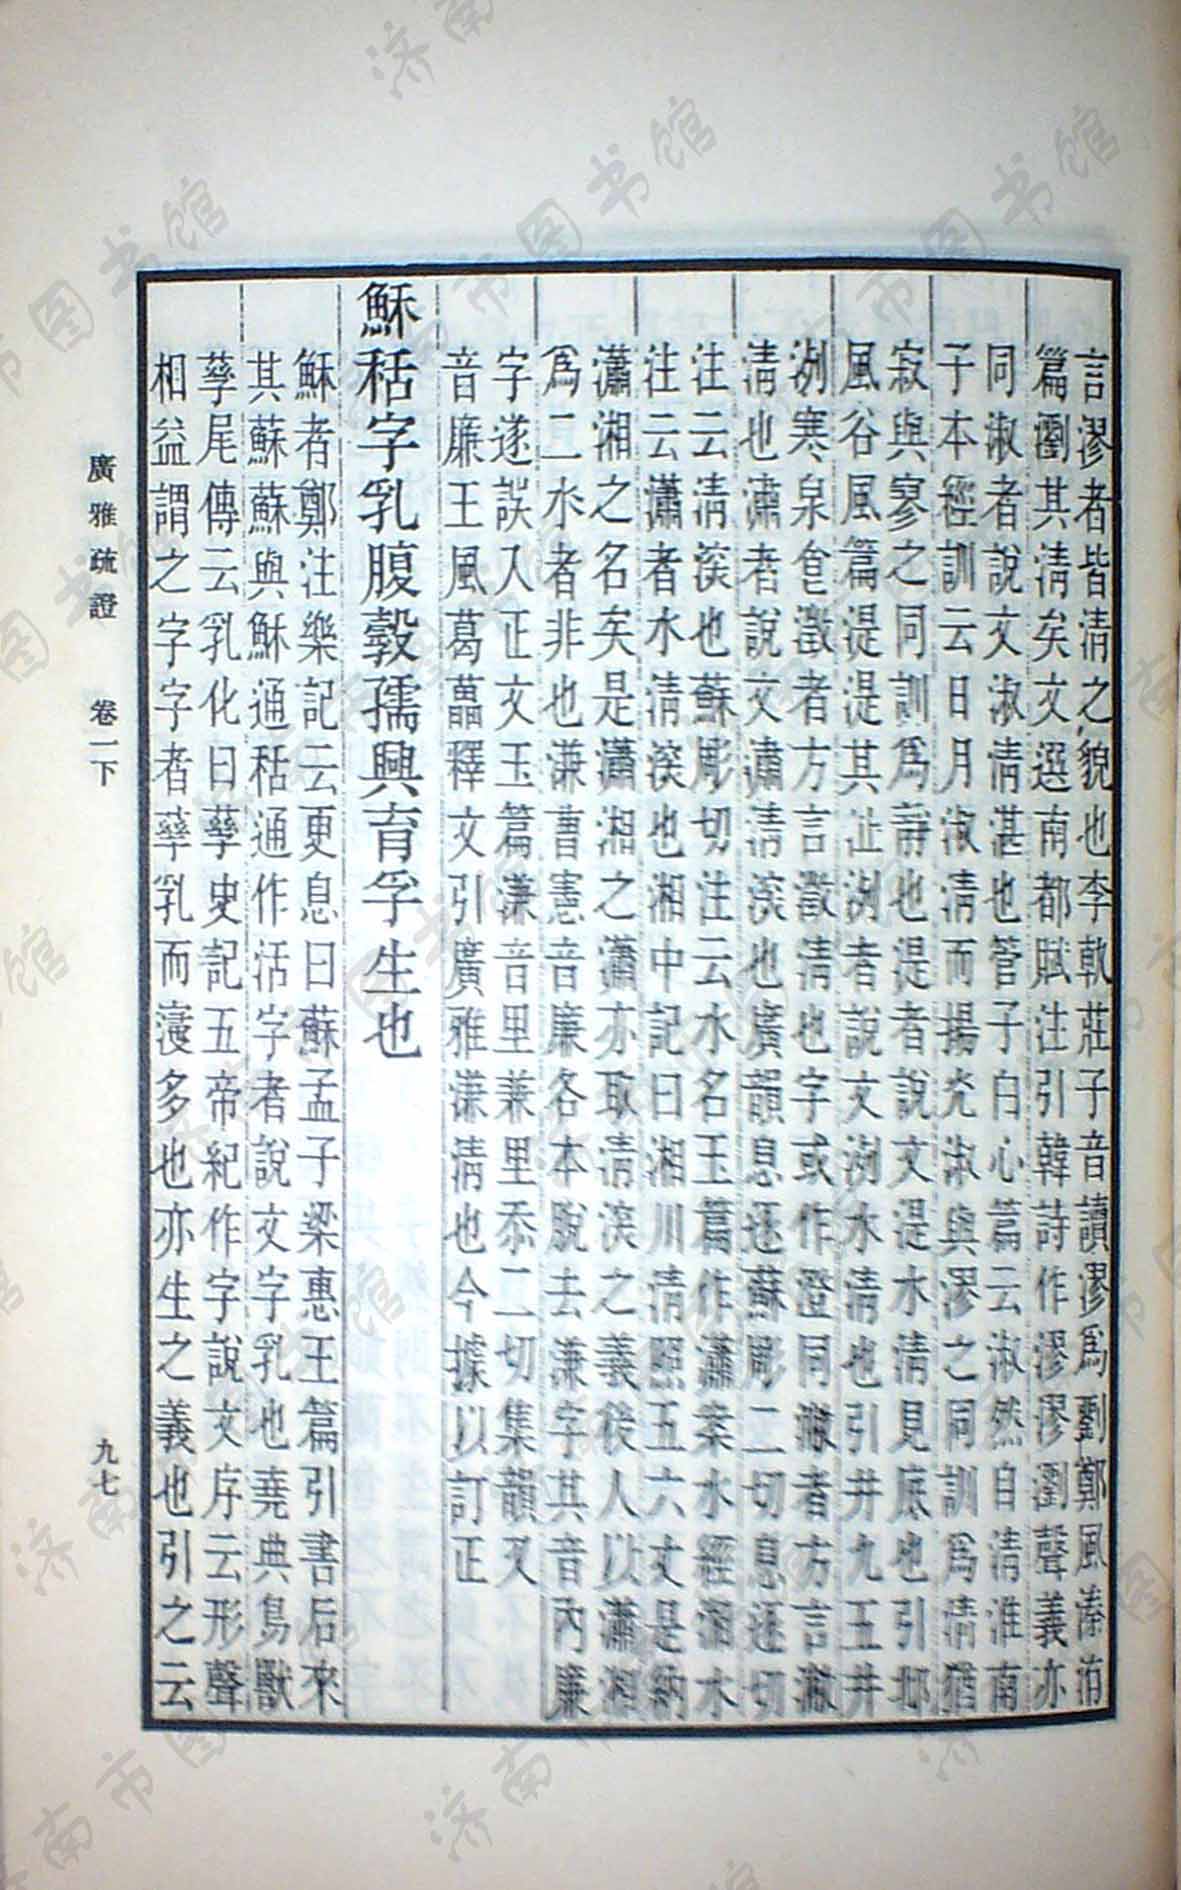 言漻者皆清之貌也李軌莊子音讀漻爲劉鄭風溱洧
篇瀏其清矣文選南都賦注引韓詩作漻漻瀏聲義亦
同淑者說文淑清湛也管子白心篇云淑然自清淮南
子本經訓云日月淑清而揚光淑與漻之同訓爲清猶
寂與寥之同訓爲靜也湜者說文湜水清見底也引邶
風谷風篇湜湜其止洌者說文洌水清也引井九五井
洌寒泉食澂者方言澂清也字或作澄同漵者方言漵
清也潚者說文潚清深也廣韻息逐蘇彫二切息逐切
注云清深也蘇彫切注云水名玉篇作瀟案水經湘水
注云瀟者水清深也湘中記曰湘川清照五六丈是納
瀟湘之名矣是瀟湘之瀟亦取清深之義後人以瀟湘
爲二水者非也溓曹憲音廉各本脫去溓字其音內廉
字遂誤入正文玉篇溓音里兼里忝二切集韻又
音廉王風葛藟釋文引廣雅溓清也今據以訂正
穌秳字乳腹㝅孺興育孚生也
穌者鄭注樂記云更息曰蘇孟子梁惠王篇引書后來
其蘇蘇與穌通秳通作活字者說文字乳也堯典鳥獸
孳尾傳云乳化曰孳史記五帝紀作字說文序云形聲
相益謂之字字者孳乳而浸多也亦生之義也引之云
廣雅疏證 卷一下
九七